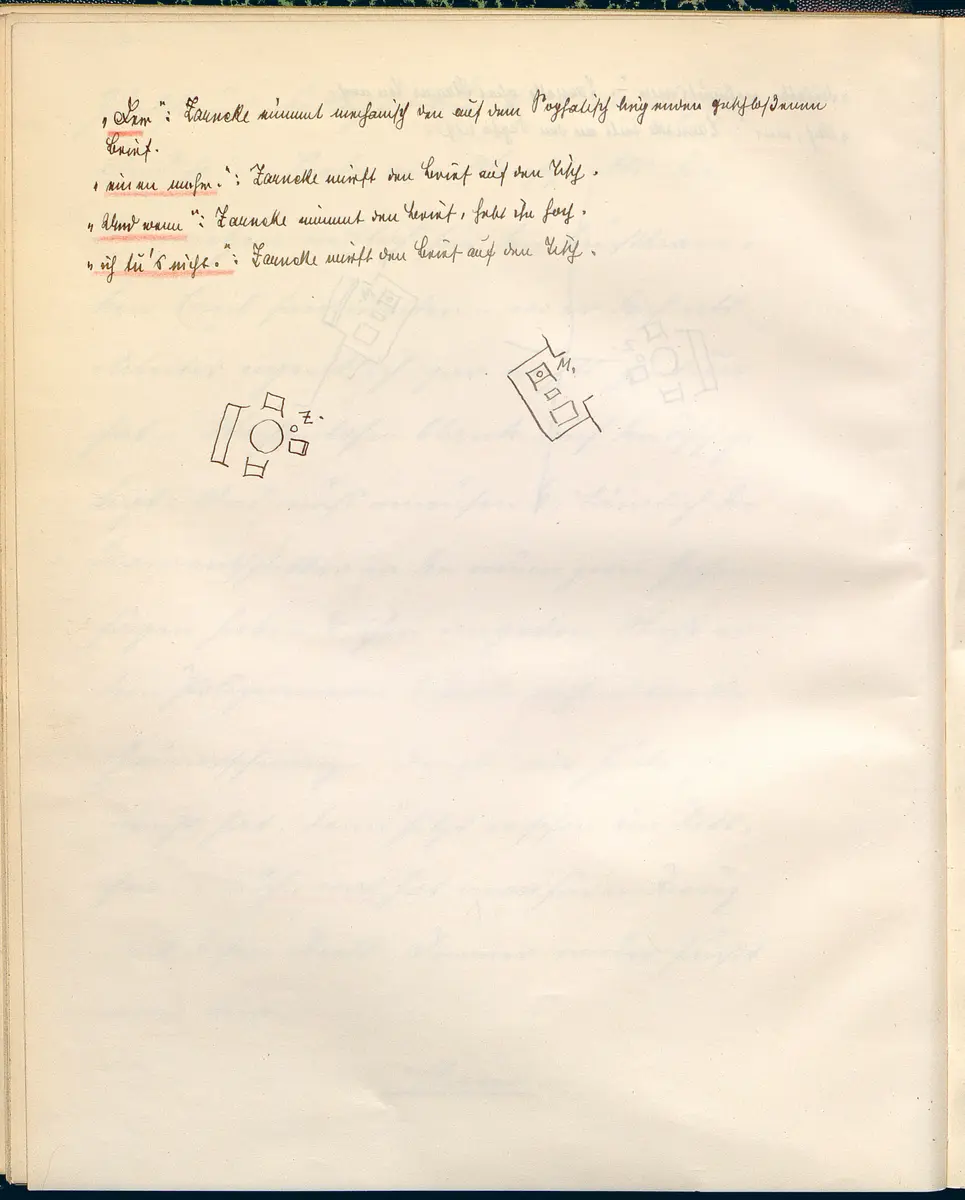 „Der“: Zarncke nimmt mechanisch den auf dem Sophatisch liegenden geschloßenen
Brief.
„einen mehr.“: Zarncke wirft den Brief auf den Tisch.
„Und wenn“: Zarncke nimmt den Brief, hebt ihn hoch.
„ich tu's nicht.“: Zarncke wirft den Brief auf den Tisch.
M.
Z.